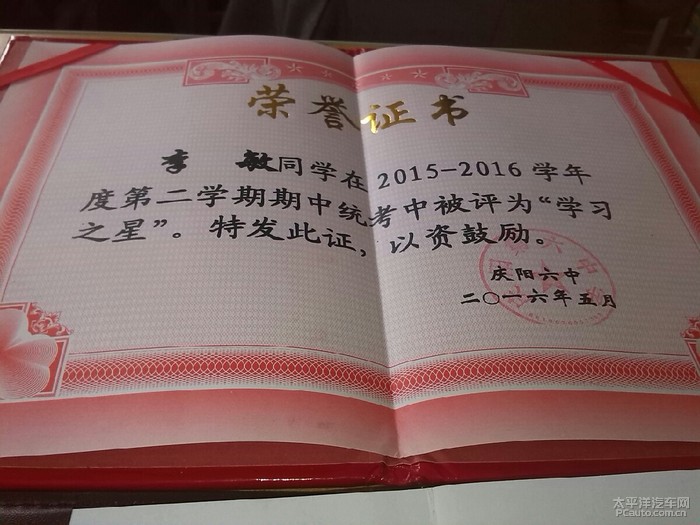 荣誉证书
李敏同学在2015-2016学年
度第二学期期中统考中被评为“学习
之星”。特发此证，以资鼓励。
庆阳六中
二〇一六年五月
太平洋汽车网
PCauto.com.cn